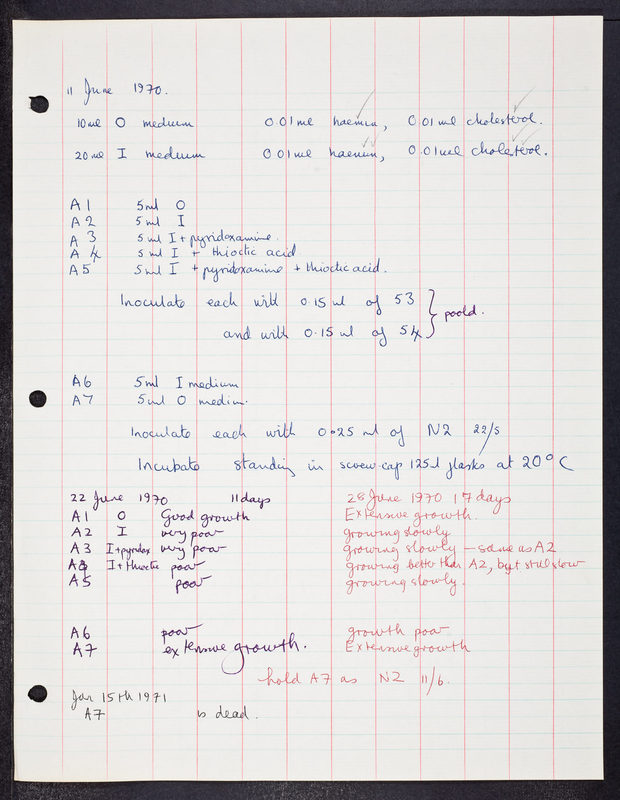 11 June 1970.
10ml O medium 0.01ml haemin, 0.01ml cholesterol.
20ml I medium 0.01ml haemin, 0.01ml cholesterol.
A1 5ml O
A2 5ml I
A3 5ml I + pyridoxamine.
A4 5ml I + thioctic acid
A5 5ml I + pyridoxamine + thioctic acid.
Inoculate each with 0.15 ml of 53
and with 0.15 ml of 54 } poold.
A6 5ml I medium
A7 5ml O medium.
Inoculate each with 0.25 ml of N2 22/5
Incubate standing in screw-cap 125ml flasks at 20°C
22 June 1970 11 days 28 June 1970 17 days
A1 O Good growth Extensive growth.
A2 I very poor growing slowly
A3 I+pyridox very poor growing slowly - same as A2
A4 I+thioctic poor growing better than A2, but still slow
A5 poor growing slowly.
A6 poor growth poor
A7 extensive growth. Extensive growth
hold A7 as N2 11/6.
Jan 15th 1971
A7 is dead.